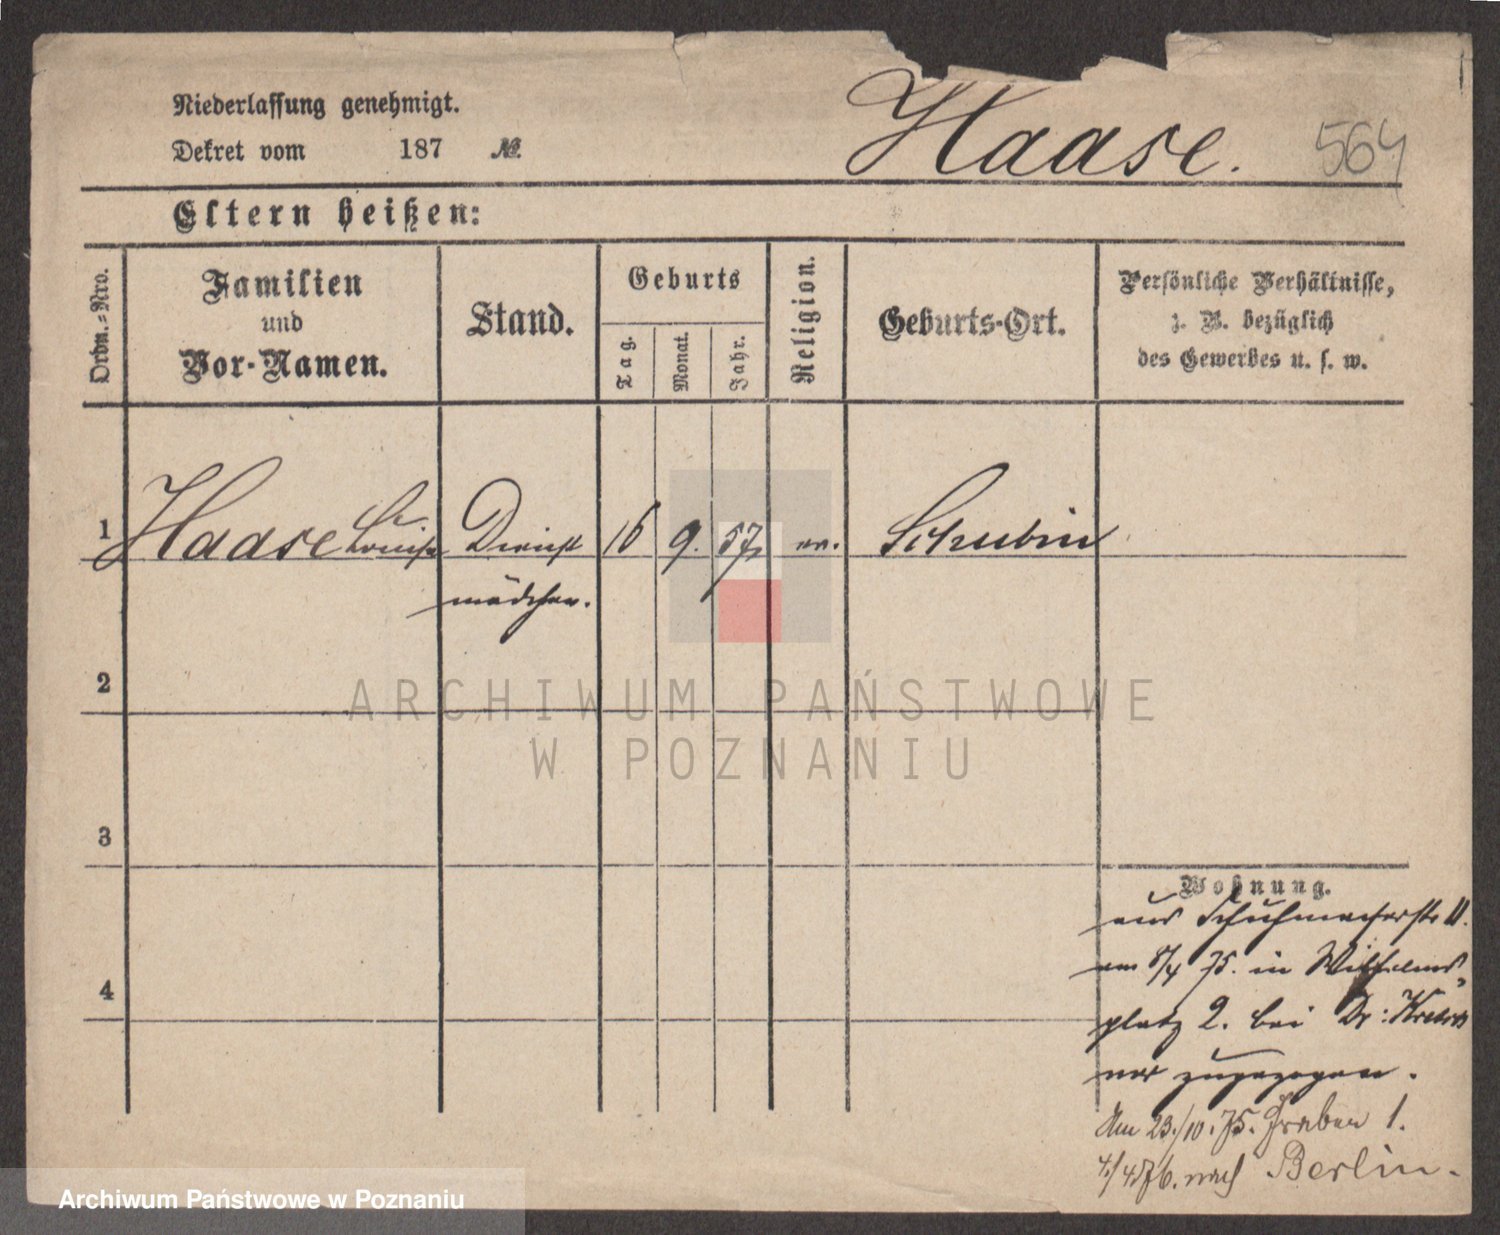 Niederlassung genehmigt.
Dekret vom 187 №.
Haase.
564
Eltern heißen:
Ordn.-Nro.
Familien
und
Vor-Namen.
Stand.
Geburts
Tag.
Monat.
Jahr.
Religion.
Geburts-Ort.
Persönliche Verhältnisse,
z. B. bezüglich
des Gewerbes u. s. w.
1 Haase Louise Dienst 16 9. 57. ev. Schubin
mädchen.
2
ARCHIWUM PAŃSTWOWE
W POZNANIU
3
4
Wohnung.
aus Schuhmacherstr 11.
am 8/4 75. in Wilhelms
platz 2. bei Dr:
zugezogen.
Am 23./10. 75. Graben 1.
4/4 76. nach Berlin.
Archiwum Państwowe w Poznaniu